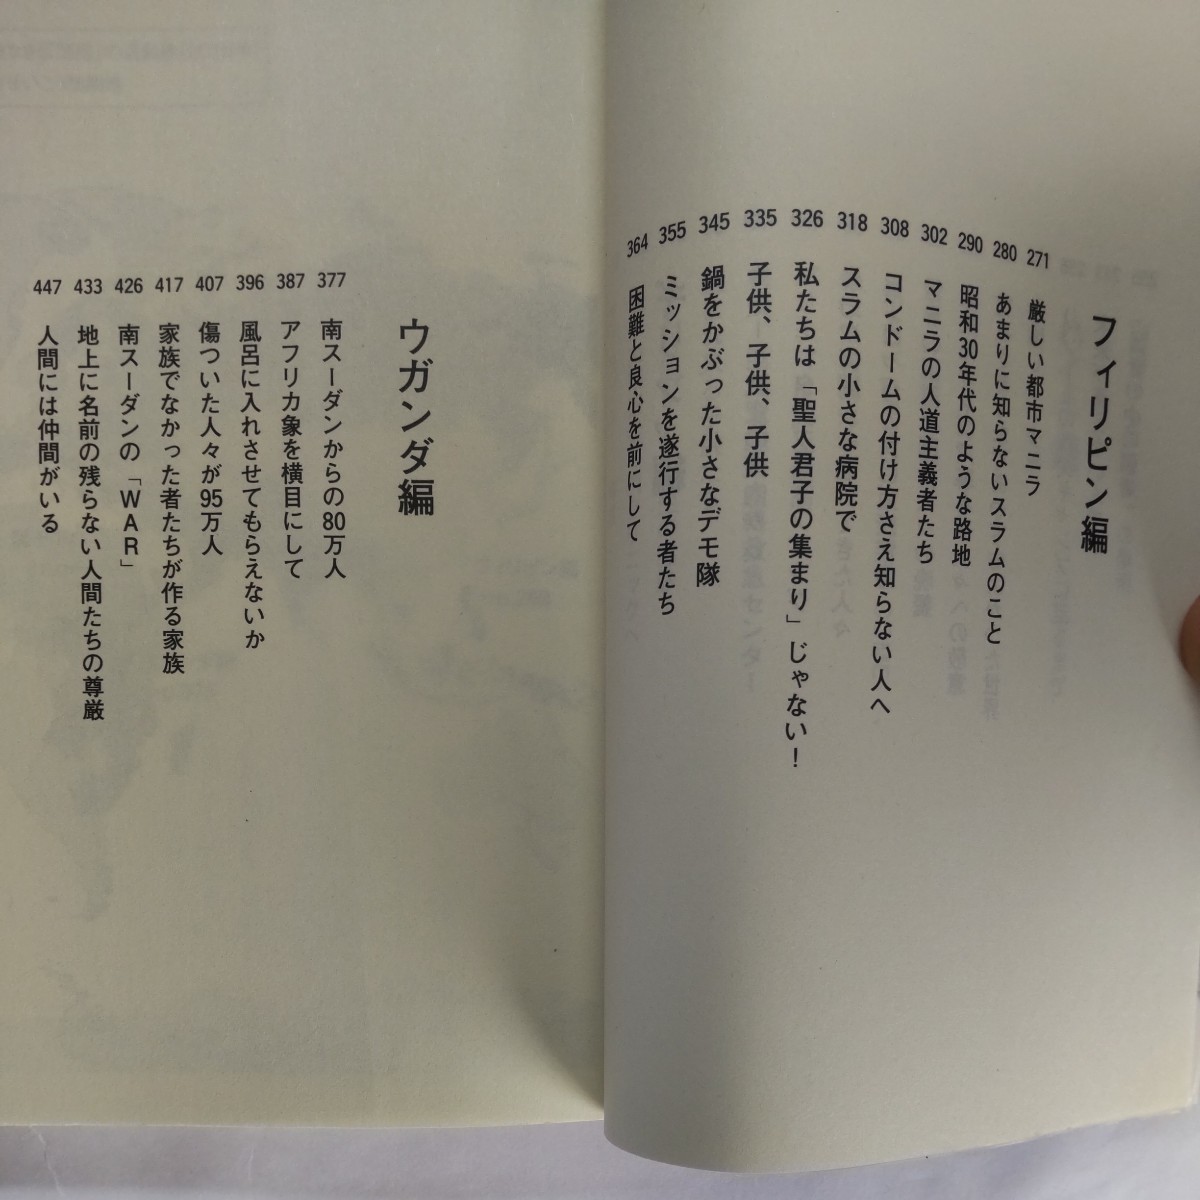 フィリピン編
厳しい都市マニラ 271
あまりに知らないスラムのこと 280
昭和30年代のような路地 290
マニラの人道主義者たち 302
コンドームの付け方さえ知らない人へ 308
スラムの小さな病院で 318
私たちは「聖人君子の集まり」じゃない! 326
子供、子供、子供 335
鍋をかぶった小さなデモ隊 345
ミッションを遂行する者たち 355
困難と良心を前にして 364
ウガンダ編
南スーダンからの80万人 377
アフリカ象を横目にして 387
風呂に入れさせてもらえないか 396
傷ついた人々が95万人 407
家族でなかった者たちが作る家族 417
南スーダンの「WAR」 426
地上に名前の残らない人間たちの尊厳 433
人間には仲間がいる 447